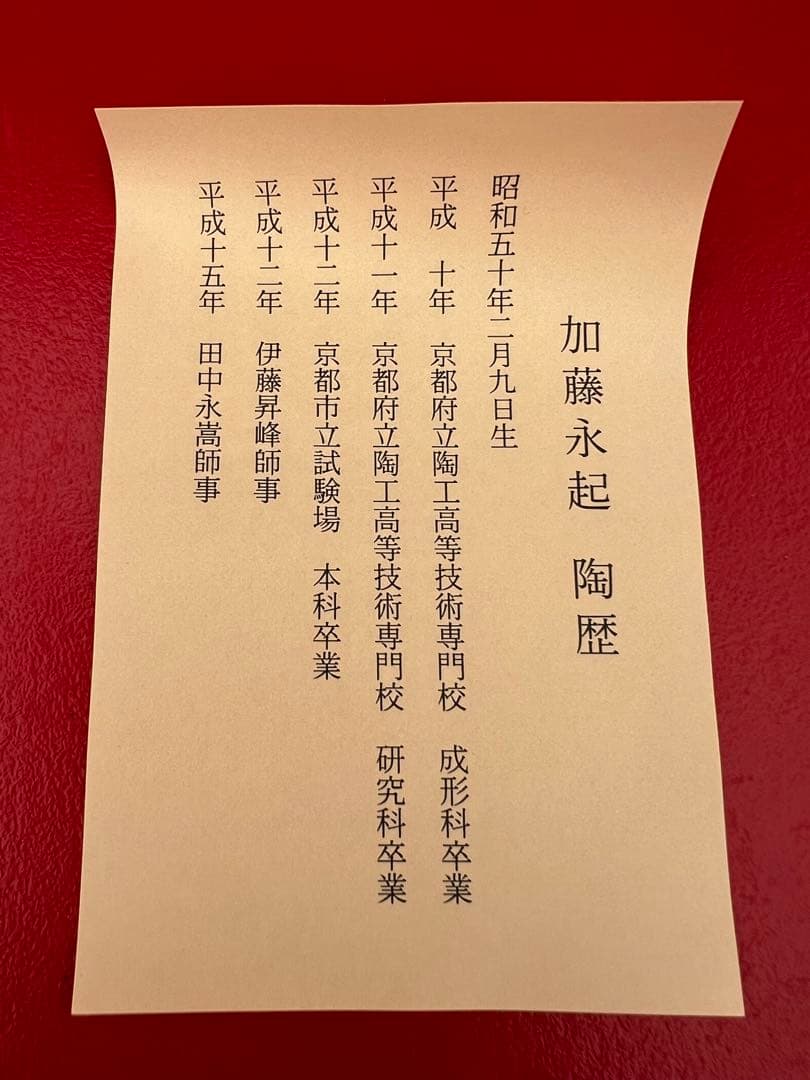 加藤永起　陶歴
昭和五十年二月九日生
平成　十年　京都府立陶工高等技術専門校　成形科卒業
平成十一年　京都府立陶工高等技術専門校　研究科卒業
平成十二年　京都市立試験場　本科卒業
平成十二年　伊藤昇峰師事
平成十五年　田中永嵩師事